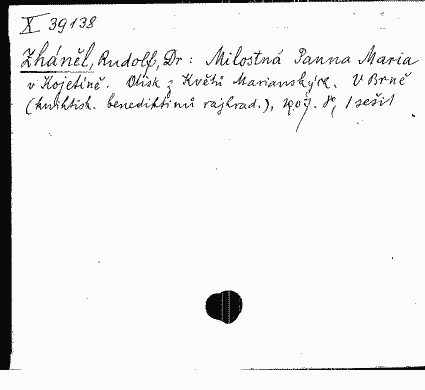 X 39138
Zháněl, Rudolf, Dr: Milostná Panna Maria
v Kojetíně. Otisk z Květů Marianských. V Brně
(knihtisk. benediktinů rajhrad.), 1907. 8°, 1 sešit